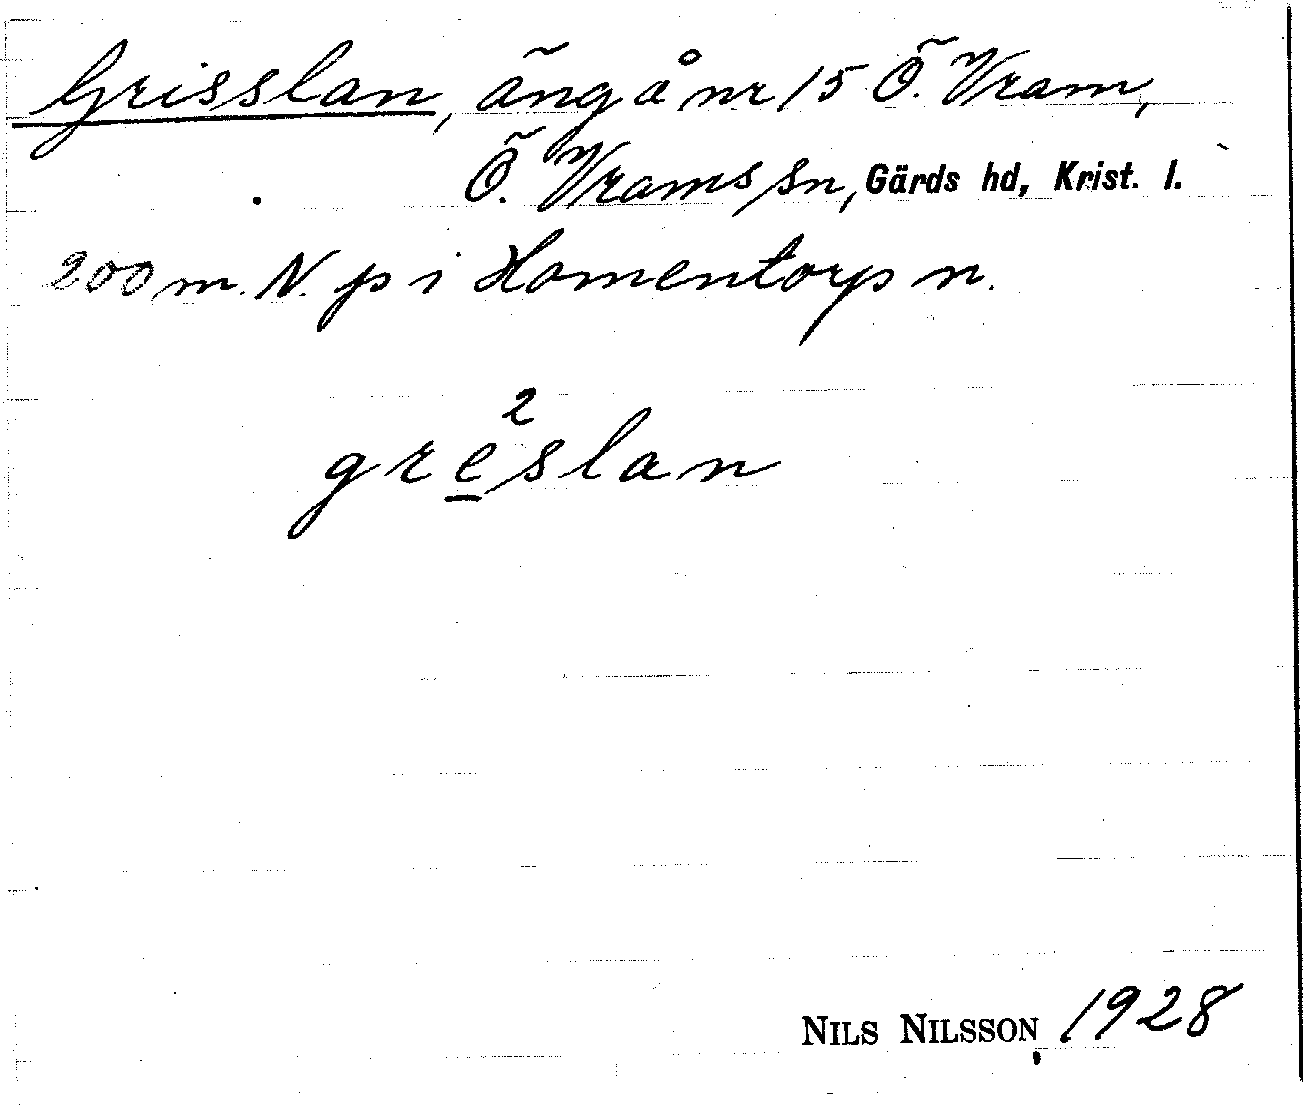 Grisslan, äng å nr 15 Ö. Vram,
Ö. Vrams sn, Gärds hd, Krist. l.
200 m. N. p i Homentorp n.
2
greslan
NILS NILSSON, 1928